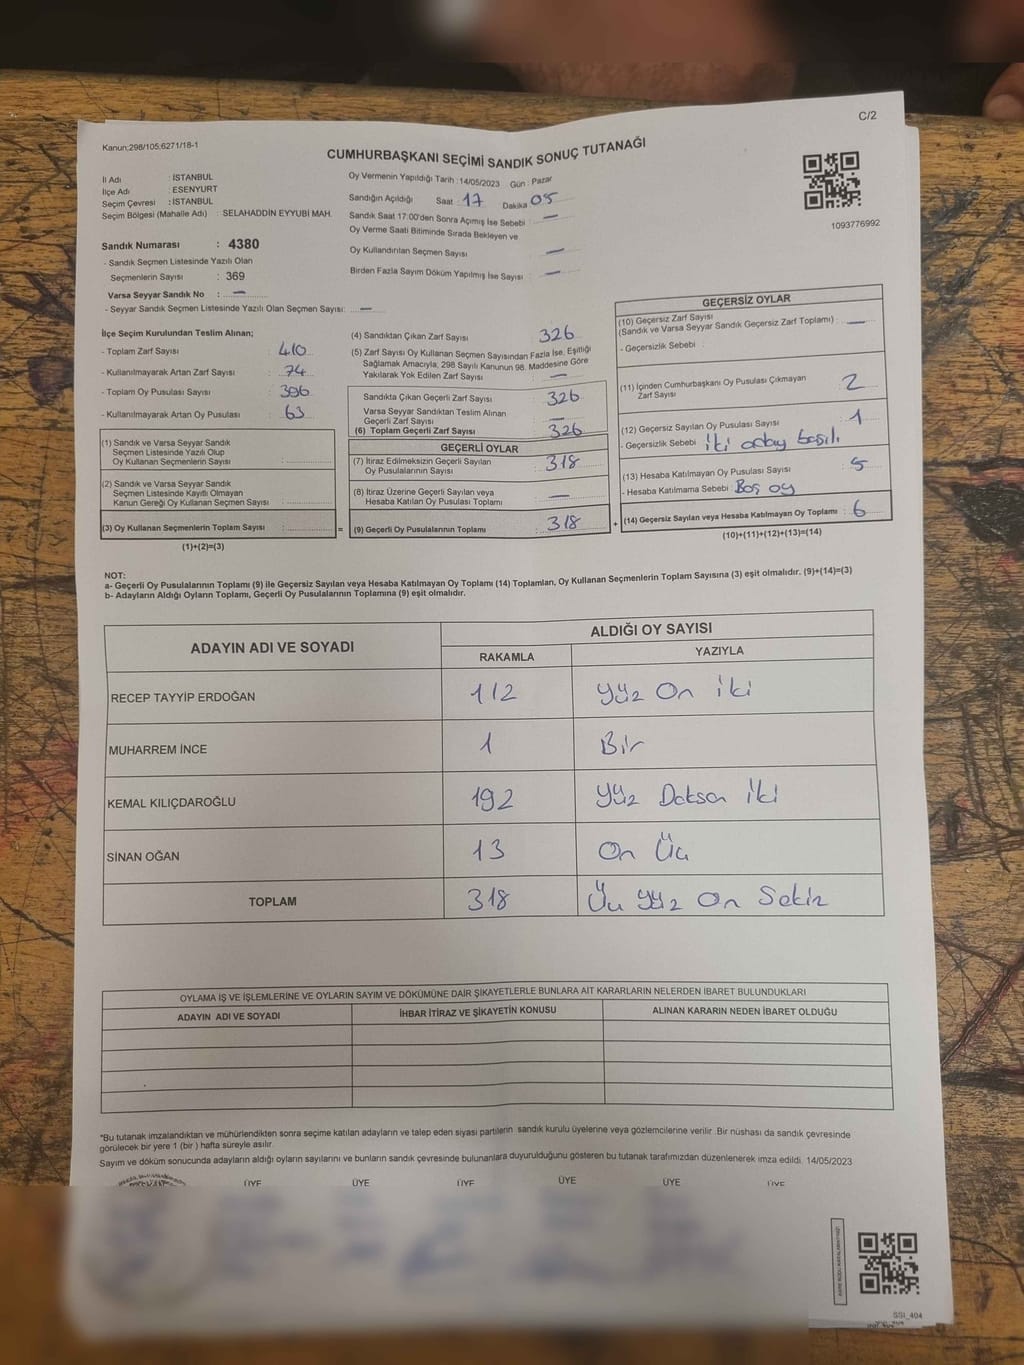 C/2
Kanun;298/105;6271/18-1
CUMHURBAŞKANI SEÇİMİ SANDIK SONUÇ TUTANAĞI
İl Adı : İSTANBUL
İlçe Adı : ESENYURT
Seçim Çevresi : İSTANBUL
Seçim Bölgesi (Mahalle Adı) : SELAHADDİN EYYUBİ MAH.
Sandık Numarası : 4380
- Sandık Seçmen Listesinde Yazılı Olan
Seçmenlerin Sayısı : 369
Varsa Seyyar Sandık No : —
- Seyyar Sandık Seçmen Listesinde Yazılı Olan Seçmen Sayısı: —
Oy Vermenin Yapıldığı Tarih : 14/05/2023 Gün : Pazar
Sandığın Açıldığı Saat : 17 Dakika 05
Sandık Saat 17:00'den Sonra Açımış İse Sebebi : —
Oy Verme Saati Bitiminde Sırada Bekleyen ve
Oy Kullandırılan Seçmen Sayısı —
Birden Fazla Sayım Döküm Yapılmış İse Sayısı : —
1093776992
İlçe Seçim Kurulundan Teslim Alınan;
- Toplam Zarf Sayısı : 410
- Kullanılmayarak Artan Zarf Sayısı : 74
- Toplam Oy Pusulası Sayısı : 396
- Kullanılmayarak Artan Oy Pusulası : 63
(1) Sandık ve Varsa Seyyar Sandık
Seçmen Listesinde Yazılı Olup
Oy Kullanan Seçmenlerin Sayısı :
(2) Sandık ve Varsa Seyyar Sandık
Seçmen Listesinde Kayıtlı Olmayan
Kanun Gereği Oy Kullanan Seçmen Sayısı :
(3) Oy Kullanan Seçmenlerin Toplam Sayısı : =
(1)+(2)=(3)
(4) Sandıktan Çıkan Zarf Sayısı : 326
(5) Zarf Sayısı Oy Kullanan Seçmen Sayısından Fazla İse, Eşitliği
Sağlamak Amacıyla, 298 Sayılı Kanunun 98. Maddesine Göre
Yakılarak Yok Edilen Zarf Sayısı : —
Sandıkta Çıkan Geçerli Zarf Sayısı : 326
Varsa Seyyar Sandıktan Teslim Alınan
Geçerli Zarf Sayısı : —
(6) Toplam Geçerli Zarf Sayısı : 326
GEÇERLİ OYLAR
(7) İtiraz Edilmeksizin Geçerli Sayılan
Oy Pusulalarının Sayısı : 318
(8) İtiraz Üzerine Geçerli Sayılan veya
Hesaba Katılan Oy Pusulası Toplamı : —
(9) Geçerli Oy Pusulalarının Toplamı : 318 +
GEÇERSİZ OYLAR
(10) Geçersiz Zarf Sayısı
(Sandık ve Varsa Seyyar Sandık Geçersiz Zarf Toplamı) : —
- Geçersizlik Sebebi :
(11) İçinden Cumhurbaşkanı Oy Pusulası Çıkmayan
Zarf Sayısı : 2
(12) Geçersiz Sayılan Oy Pusulası Sayısı : 1
- Geçersizlik Sebebi : İki onay basılı
(13) Hesaba Katılmayan Oy Pusulası Sayısı : 5
- Hesaba Katılmama Sebebi : Boş oy
(14) Geçersiz Sayılan veya Hesaba Katılmayan Oy Toplamı : 6
(10)+(11)+(12)+(13)=(14)
NOT:
a- Geçerli Oy Pusulalarının Toplamı (9) ile Geçersiz Sayılan veya Hesaba Katılmayan Oy Toplamı (14) Toplamları, Oy Kullanan Seçmenlerin Toplam Sayısına (3) eşit olmalıdır. (9)+(14)=(3)
b- Adayların Aldığı Oyların Toplamı, Geçerli Oy Pusulalarının Toplamına (9) eşit olmalıdır.
ADAYIN ADI VE SOYADI ALDIĞI OY SAYISI
RAKAMLA YAZIYLA
RECEP TAYYİP ERDOĞAN 112 Yüz On İki
MUHARREM İNCE 1 Bir
KEMAL KILIÇDAROĞLU 192 Yüz Doksan İki
SİNAN OĞAN 13 On Üç
TOPLAM 318 Üç Yüz On Sekiz
OYLAMA İŞ VE İŞLEMLERİNE VE OYLARIN SAYIM VE DÖKÜMÜNE DAİR ŞİKAYETLERLE BUNLARA AİT KARARLARIN NELERDEN İBARET BULUNDUKLARI
ADAYIN ADI VE SOYADI İHBAR İTİRAZ VE ŞİKAYETİN KONUSU ALINAN KARARIN NEDEN İBARET OLDUĞU
*Bu tutanak imzalandıktan ve mühürlendikten sonra seçime katılan adayların ve talep eden siyasi partilerin sandık kurulu üyelerine veya gözlemcilerine verilir. Bir nüshası da sandık çevresinde
görülecek bir yere 1 (bir) hafta süreyle asılır.
Sayım ve döküm sonucunda adayların aldığı oyların sayılarını ve bunların sandık çevresinde bulunanlara duyurulduğunu gösteren bu tutanak tarafımızdan düzenlenerek imza edildi. 14/05/2023
ÜYE ÜYE ÜYE ÜYE ÜYE ÜYE
SSI_404